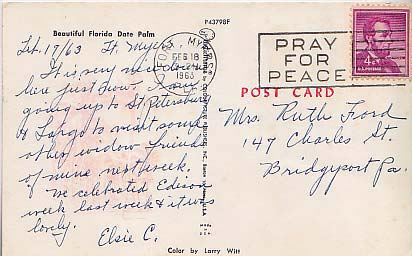 P43798F
Beautiful Florida Date Palm
Feb. 17/63 Ft. Myers
It is very nice down
here just now. I am
going up to St. Petersburg
& Largo to visit some
other widow friends
of mine next week.
We celebrated Edison
week last week & it was
lovely.
Elsie C.
FORT MYERS
FEB 18
1963
PRAY
FOR
PEACE
4¢
POST CARD
Mrs. Ruth Ford
147 Charles St.
Bridgeport Pa.
MADE IN
U.S.A.
Color by Larry Witt